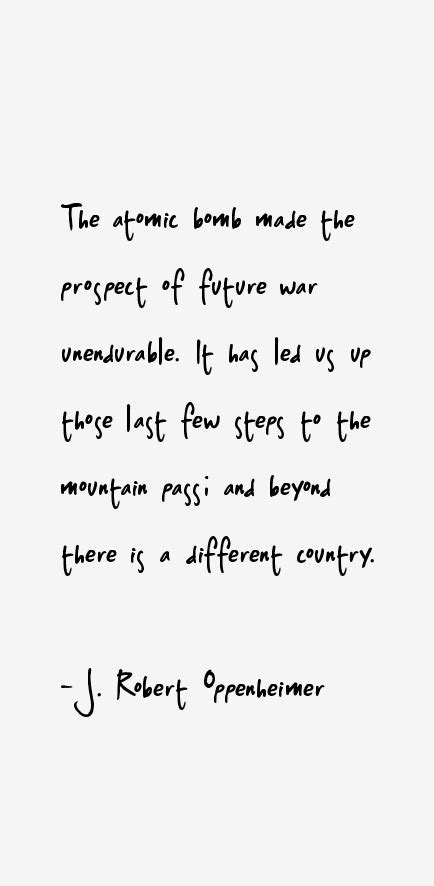 The atomic bomb made the
prospect of future war
unendurable. It has led us up
those last few steps to the
mountain pass; and beyond
there is a different country.
- J. Robert Oppenheimer